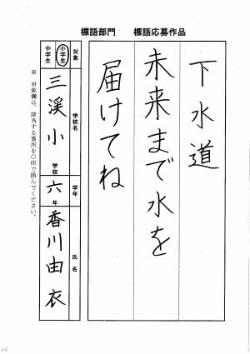 標語部門 標語応募作品
下水道
未来まで水を
届けてね
対象
小学生
中学生
学校名
三渓小
学校
学年
六
年
氏名
香川由衣
※ 対象欄は、該当する箇所を○印で囲んでください。